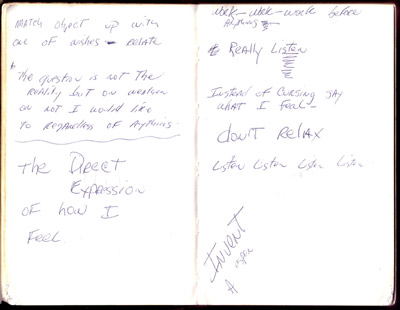 Match object up with
one of wishes - relate
the question is not the
reality but on weather
or not I would like
to regardless of anything.
the Direct
Expression
of how I
Feel.
work - work - work before
Anything
Really Listen
Instead of cursing say
what I feel -
don't Relax
Listen Listen Listen Listen
Invent
upon
A